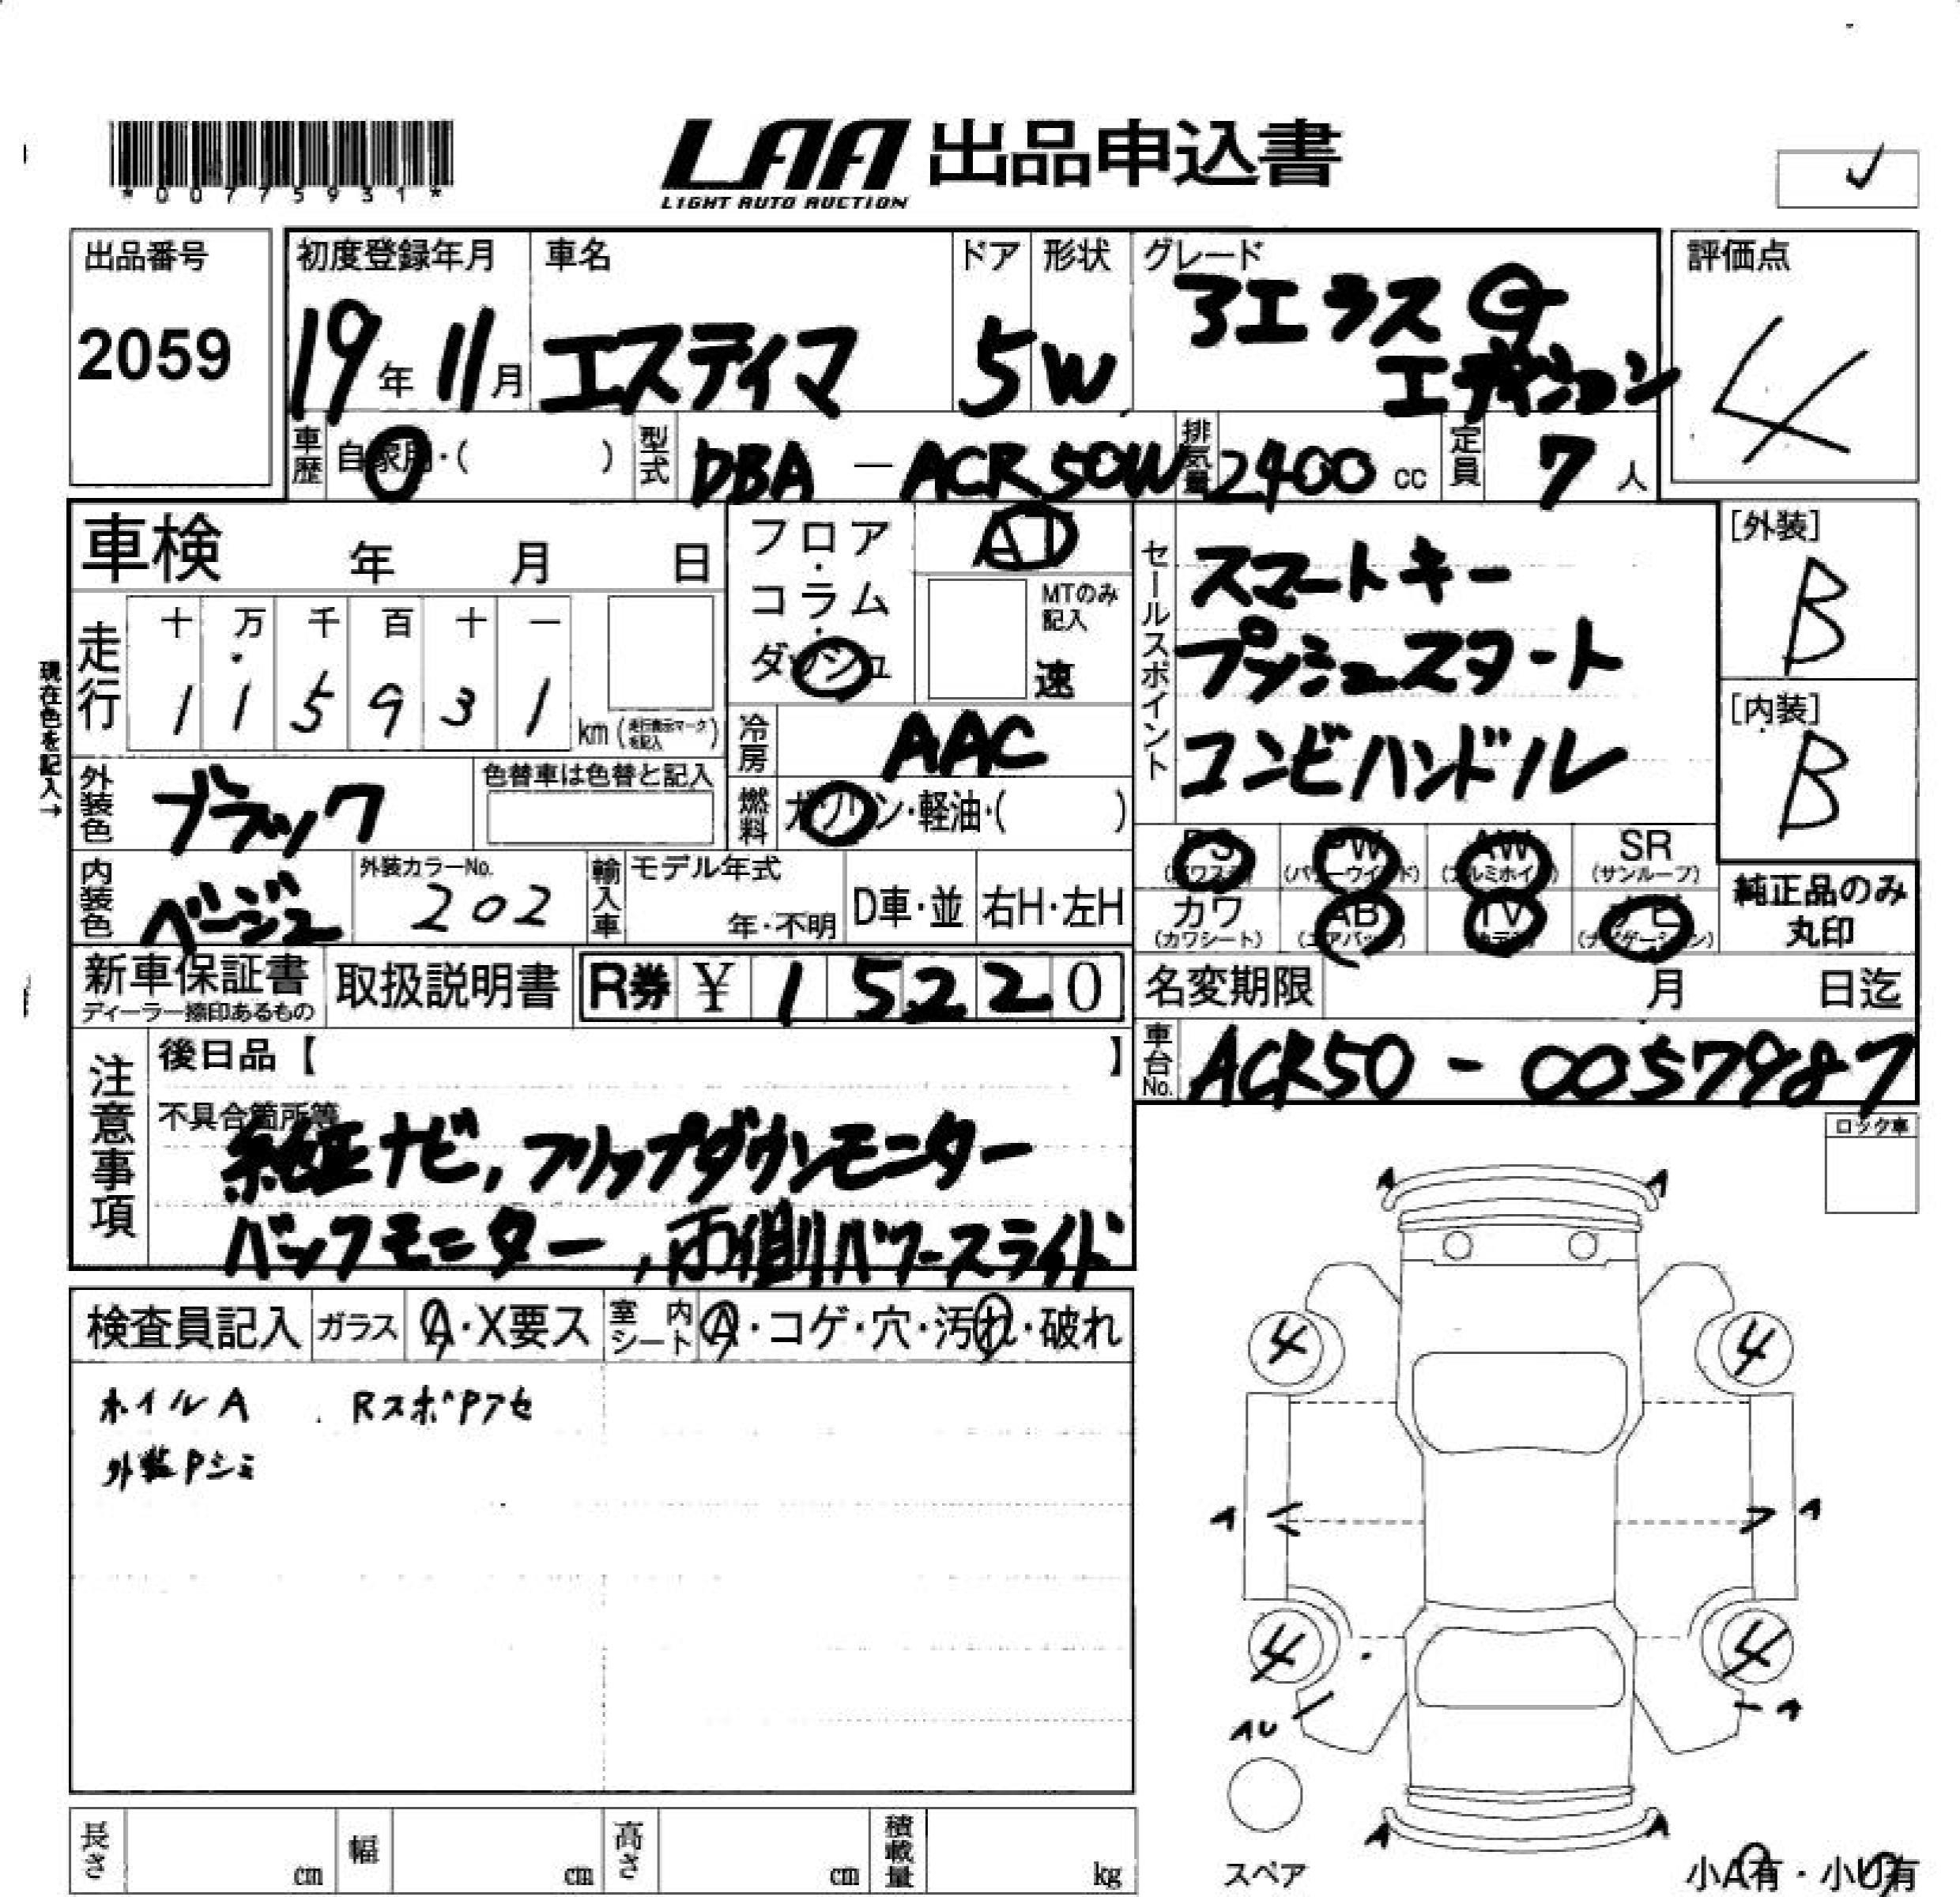 *00775931*
LAA 出品申込書
LIGHT AUTO AUCTION
出品番号
2059
初度登録年月
19年 11月
車名
エスティマ
ドア
5
形状
W
グレード
アエラス G
エディション
評価点
4
車歴
自家用・( )
型式
DBA - ACR50W
排気量
2400 cc
定員
7 人
車検 年 月 日
フロア・コラム・ダッシュ
AT
MTのみ記入
速
セールスポイント
スマートキー
プッシュスタート
コンビハンドル
[外装]
B
[内装]
B
現在色を記入→
走行
十 万 千 百 十 一
1 1 5 9 3 1 km
冷房
AAC
外装色
ブラック
色替車は色替と記入
燃料
ガソリン・軽油・( )
内装色
ベージュ
外装カラーNo.
202
輸入車
モデル年式
年・不明
D車・並
右H・左H
PS PW AW SR
(パワステ) (パワーウインド) (アルミホイル) (サンルーフ)
カワ AB TV ナビ
(カワシート) (エアバック) (ナビゲーション)
純正品のみ
丸印
新車保証書
ディーラー捺印あるもの
取扱説明書
R券 ¥ 1 5 2 2 0
名変期限 月 日迄
車台No.
ACR50 - 0057987
注意事項
後日品【 】
不具合箇所等
純正ナビ, フリップダウンモニター
バックモニター, 両側パワースライド
ロック車
検査員記入
ガラス
A・X要ス
室内シート
A・コゲ・穴・汚れ・破れ
ホイルA . RスポPアセ
外装Pシミ
A A
4 4
A A
4 4
AU A
A A
スペア
小A有・小U有
長さ cm
幅 cm
高さ cm
積載量 kg